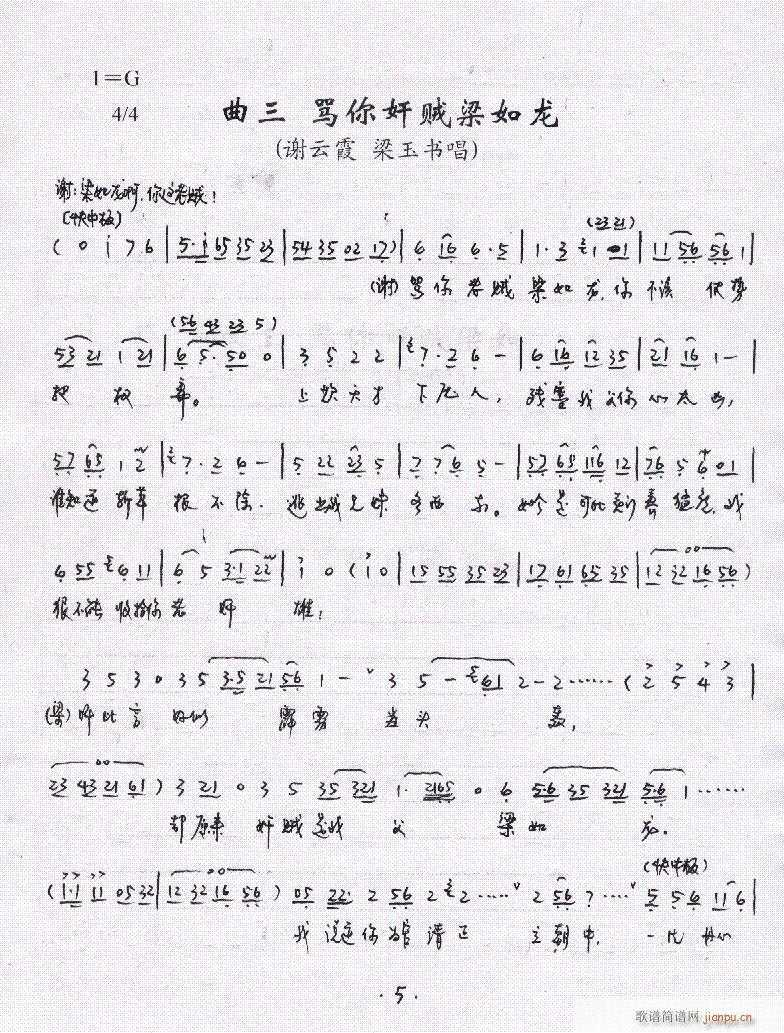 1=G
4/4
曲三 骂你奸贼梁如龙
(谢云霞 梁玉书唱)
谢:梁如龙啊,你这老贼!
(快中板) (23 21)
(0 i 7 6 | 5·i 65 35 23 | 54 35 02 17) | 6 16 6·5 | 1·3 21 01 | 11 56 56 1 |
(谢)骂你老贼梁如龙,你不该使势
(56 43 23 5)
53 21 1 21 | 6 5·50 0 | 3 5 2 2 | 7·2 6 - | 6 16 12 35 | 21 16 1 - |
把权弄。上欺天子下
57 65 1 2 | 7·2 6 - | 5 22 23 5 | 7 7 6 5 - | 57 65 116 12 | 76 5 6 01 |
谁知道斩草根不除,逃出
6 55 6 11 | 6 5 3·1 22 | i 0 (i 0) | 15 55 35 23 | 17 61 65 35 | 12 32 16 56)
恨不能收拾你老奸雄!
3 5 3 0 3 5 3·5 21 56 1 - 3 5 - 61 2 - 2 …… (2 5 4 3 |
(梁)听此言好似霹雳当头轰,
23 43 21 61) 3 21 0 3 5 35 321 1· 2165 0 6 56 35 321 5·6 1 ……
却原来奸贼是我父梁如龙。
(快中板)
(1·1 11 05 32 | 12 32 16 56) 05 22 2 56 2 2 …… 2 56 7 …… 5 5 6 11 6 |
我说道你为官清正立朝中,一
·5·
歌谱简谱网
jianpu.cn